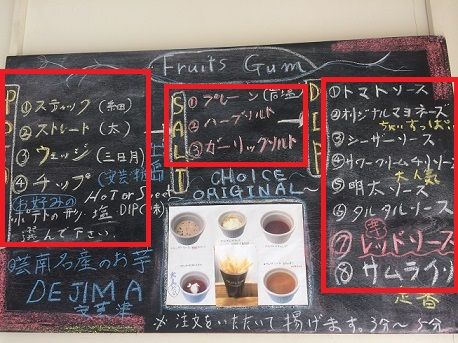 Fruits Gum
①スティック(細)
②ストレート(太)
③ウェッジ(三日月)
④チップ
お好みの Hot or Sweet
ポテトの形、塩、DIP(味)
選んで下さい
SALT
①プレーン
②ハーブソルト
③ガーリックソルト
CHOICE
ORIGINAL~
DIP
①トマトソース
②オリジナルマヨネーズ
ちょいすっぱい
③シーザーソース
④サワークリームチリソース
大人気
⑤明太ソース
⑥タルタルソース
⑦レッドソース
⑧サムライソ
定番
雲南名産のお芋
DEJIMA
※注文をいただいて揚げます。3分~5分